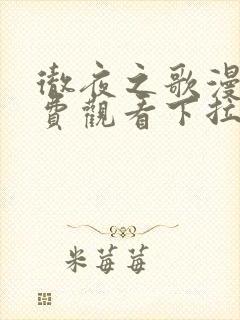 徹夜之歌漫
費觀看下拉
米莓莓